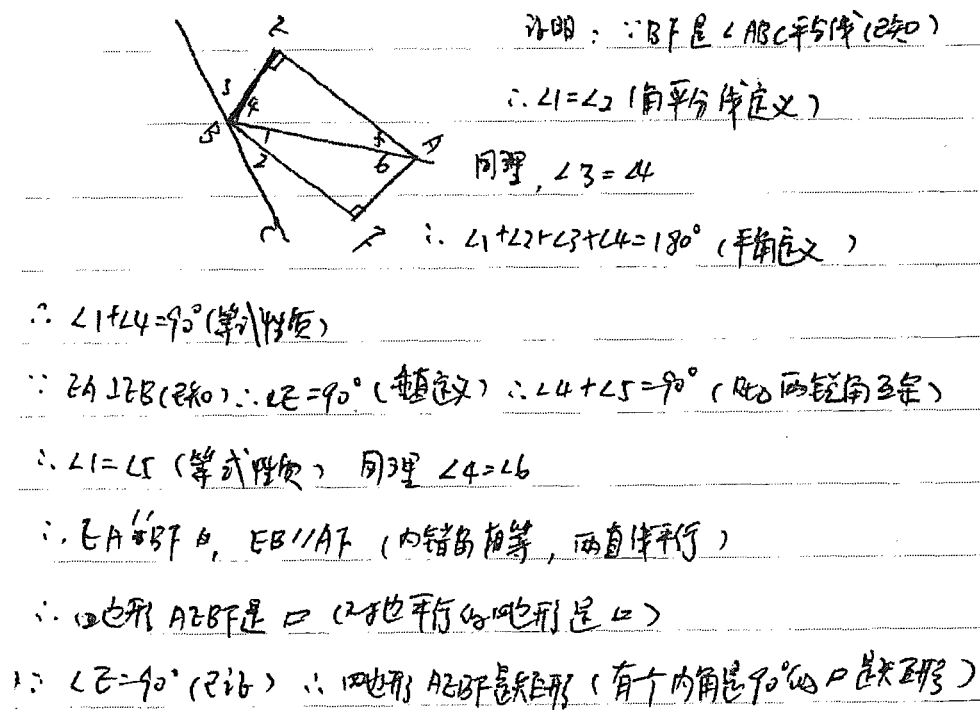 证明：∵BF是∠ABC平分线（已知）
∴∠1=∠2（角平分线定义）
同理，∠3=∠4
∴∠1+∠2+∠3+∠4=180°（平角定义）
∴∠1+∠4=90°（等式性质）
∵EA⊥EB（已知）∴∠E=90°（垂直定义）∴∠4+∠5=90°（Rt△两锐角互余）
∴∠1=∠5（等式性质）同理∠4=∠6
∴EA//BF，EB//AF（内错角相等，两直线平行）
∴四边形AEBF是▱（对边平行的四边形是▱）
∵∠E=90°（已证）∴四边形AEBF是矩形（有个内角是90°的▱是矩形）
E
3
4
B
1
2
5
6
A
C
F